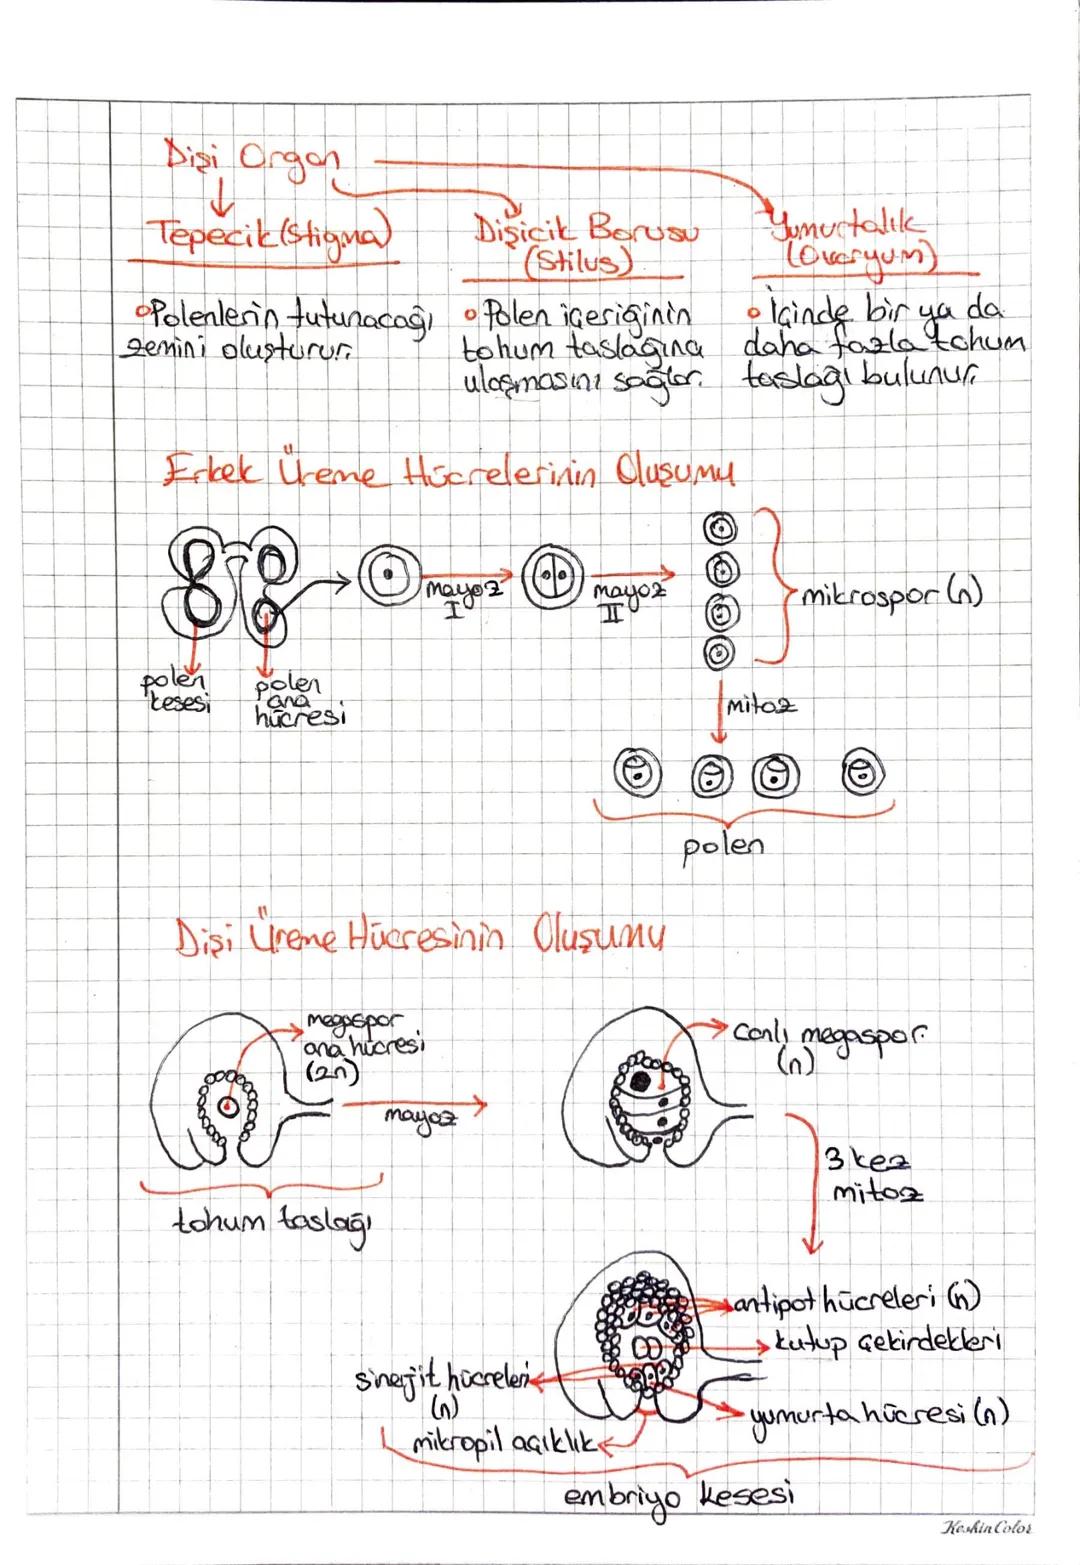 Dişi Organ
Tepecik (Stigma)
Dişicik Borusu
(Stilus)
Yumurtalık
(Ovaryum)
Polenlerin tutunacağı
zemini oluşturur.
Polen içeriğinin
tohum taslağına
ulaşmasını sağlar.
İçinde bir ya da
daha fazla tohum
taslağı bulunur.
Erkek Üreme Hücrelerinin Oluşumu
mayoz
I
mayoz
II
mikrospor (n)
polen
kesesi
polen
ana
hücresi
mitoz
polen
Dişi Üreme Hücresinin Oluşumu
megaspor
ana hücresi
(2n)
mayoz
canlı megaspor
(n)
3 kez
mitoz
tohum taslağı
antipot hücreleri (n)
kutup çekirdekleri
sinerjit hücreleri
(n)
yumurta hücresi (n)
mikropil açıklık
embriyo kesesi
KeskinColor